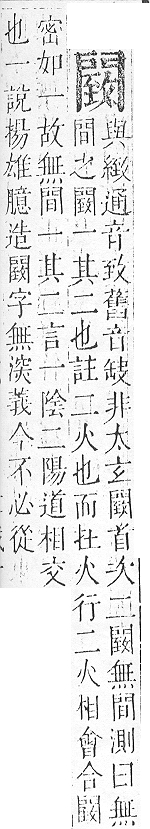 䦯
與緻通音致舊音缺非太玄䦯首次二䦯無間測曰無
間之䦯一其二也註二火也而在火行二火相會合䦯
密如一故無間一其二言一陰二陽道相交
也一說揚雄臆造䦯字無深義今不必從